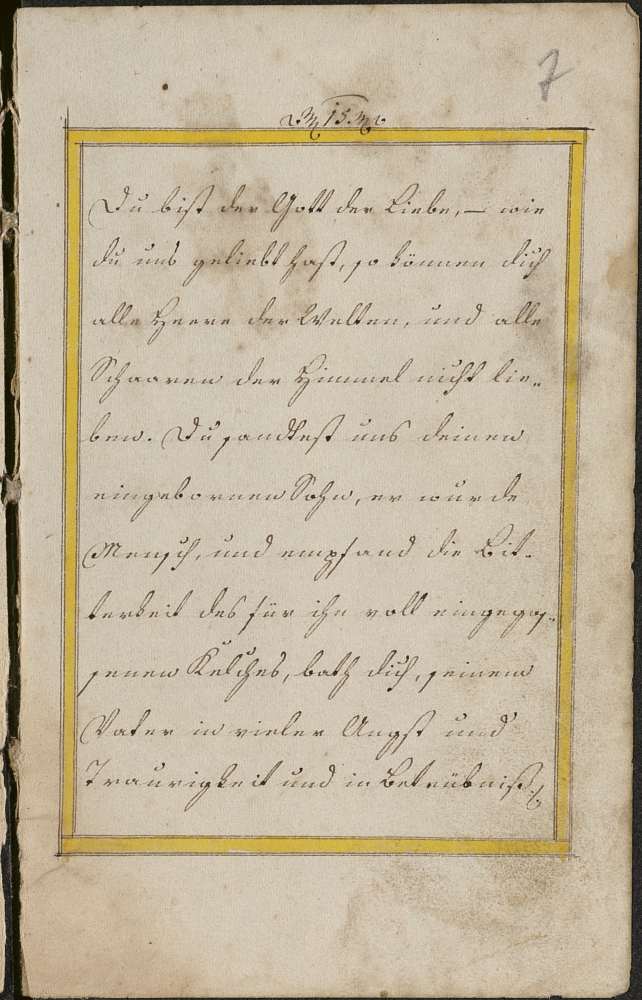 7
15.
Du bist der Gott der Liebe, – wie
du uns geliebt hast, so können dich
alle Heere der Welten, und alle
Schaaren der Himmel nicht lie-
ben. Du sandtest uns deinen
eingebornen Sohn, er wurde
Mensch, und empfand die Bit-
terkeit des für ihn voll eingegos-
senen Kelches, bath dich, seinem
Vater in vieler Angst und
Traurigkeit und in Betrübniß